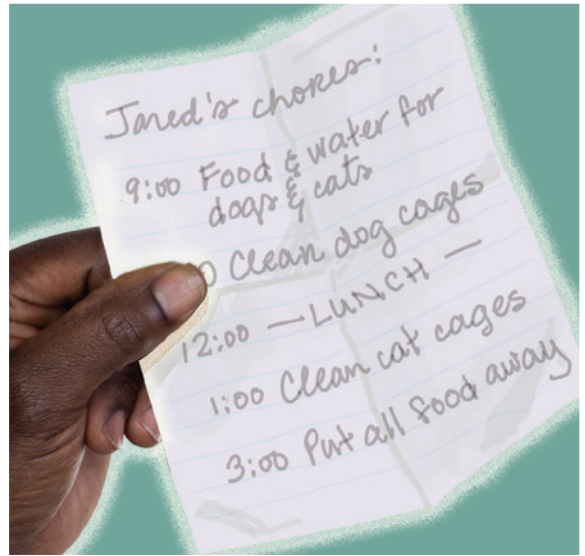 Jared's chores:
9:00 Food & water for
dogs & cats
0 Clean dog cages
12:00 — LUNCH —
1:00 Clean cat cages
3:00 Put all food away